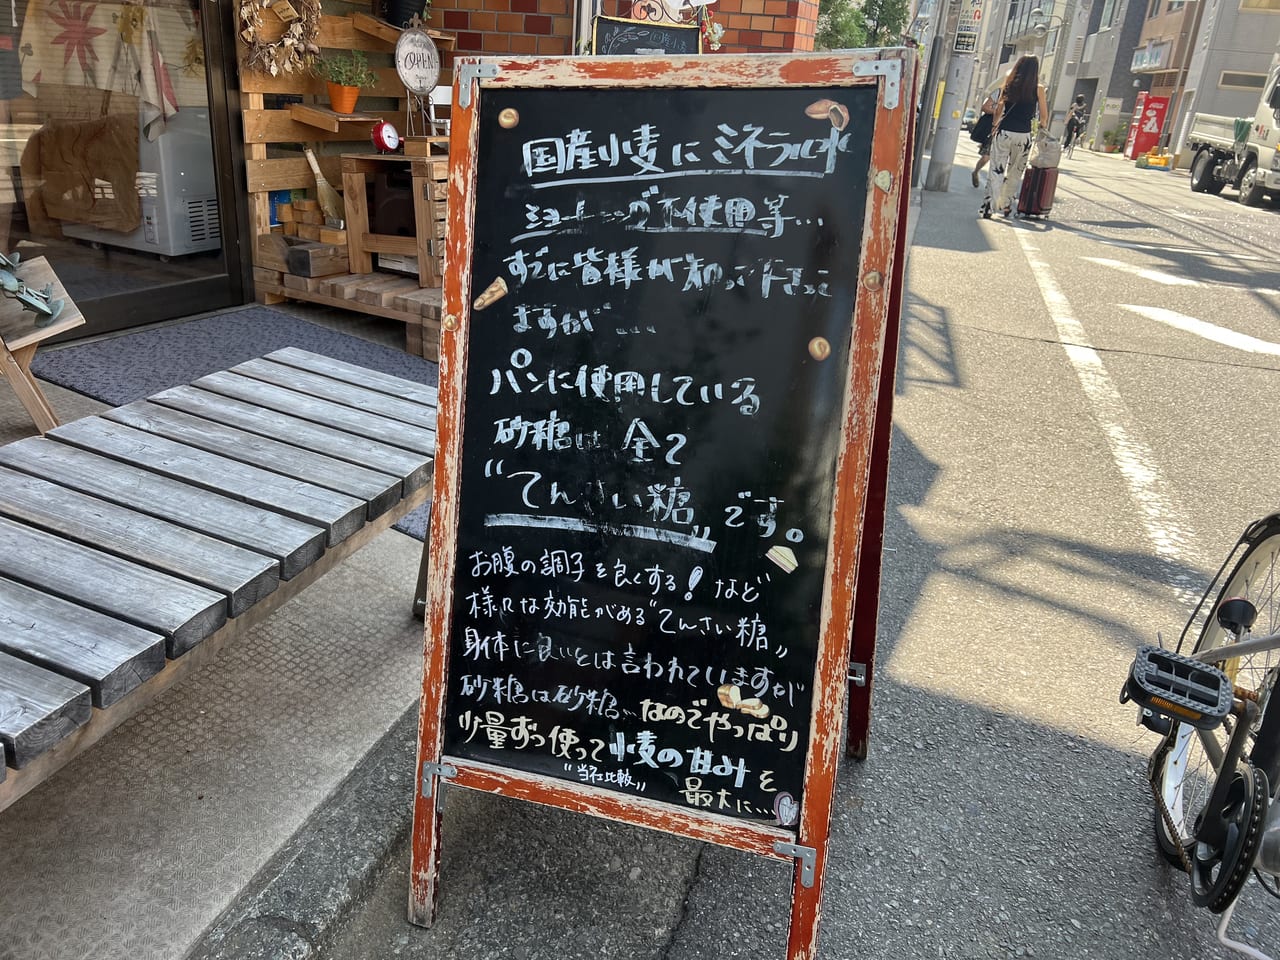 OPEN
国産小麦にミネラル水
ショートニング不使用等…
すでに皆様が知って下さってい
ますが……
パンに使用している
砂糖は全て
“てんさい糖„です。
お腹の調子を良くする!など
様々な効能がある“てんさい糖„
身体に良いとは言われていますが
砂糖は砂糖…なのでやっぱり
少量ずつ使って小麦の甘みを
“当社比較„ 最大に…